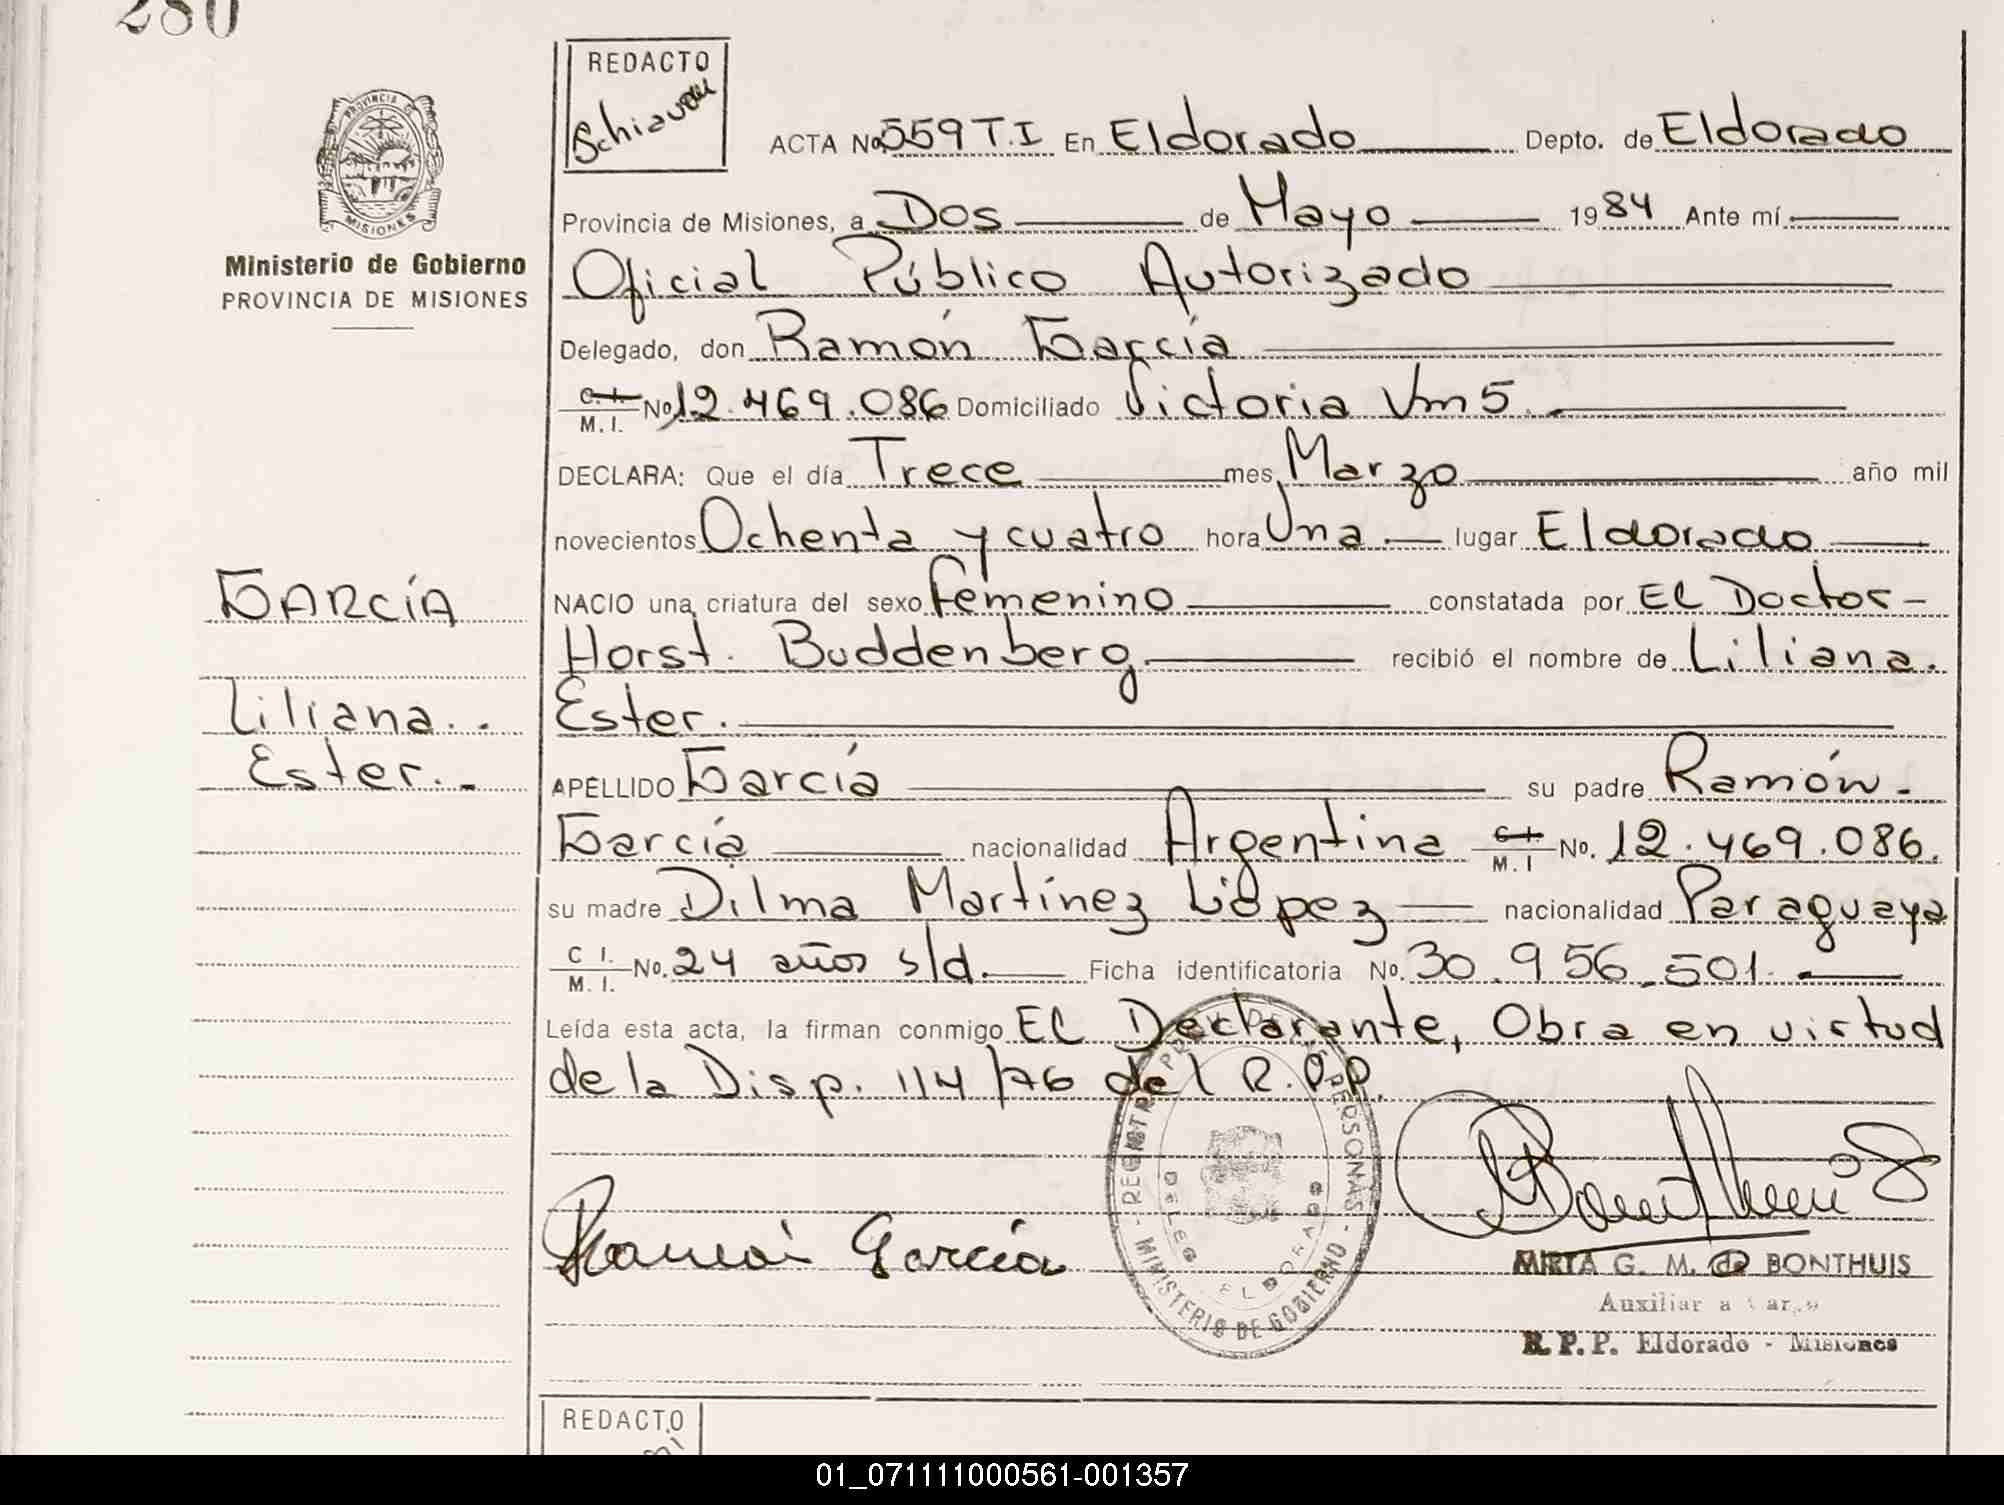 280
REDACTO
Schiavoni
PROVINCIA DE MISIONES
Ministerio de Gobierno
PROVINCIA DE MISIONES
ACTA No. 559 T.I En Eldorado Depto. de Eldorado
Provincia de Misiones, a Dos de Mayo 1984 Ante mí
Oficial Público Autorizado
Delegado, don Ramón García
C. I. M. I. No. 12.469.086 Domiciliado Victoria Vm5.
DECLARA: Que el día Trece mes Marzo año mil
novecientos Ochenta y cuatro hora Una lugar Eldorado
NACIO una criatura del sexo Femenino constatada por El Doctor
Horst. Buddenberg recibió el nombre de Liliana.
Ester.
APELLIDO García su padre Ramón
García nacionalidad Argentina C. I. M. I No. 12.469.086.
su madre Dilma Martínez López nacionalidad Paraguaya
C I. M. I. No. 24 años s/d. Ficha identificatoria No. 30.956.501.
Leída esta acta, la firman conmigo El Declarante, Obra en virtud
de la Disp. 114/76 del R.P.P.
GARCÍA
Liliana..
Ester..
Ramón García
REGISTRO PROV. DE LAS PERSONAS
MINISTERIO DE GOBIERNO
DELEG. ELDORADO
MIRTA G. M. de BONTHUIS
Auxiliar a Cargo
R. P. P. Eldorado - Misiones
REDACTO
01_071111000561-001357